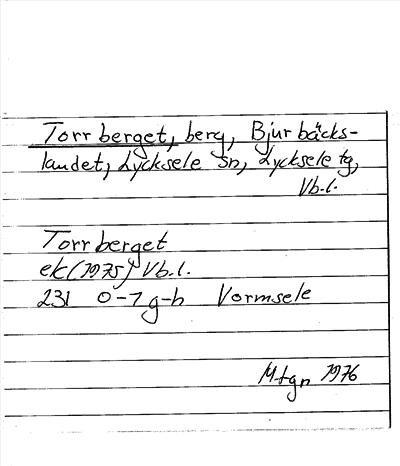 Torrberget, berg, Bjurbäcks-
landet, Lycksele sn, Lycksele tg,
Vb.l.
Torrberget
ek (1975) Vb.l.
231 0-1 g-h Vormsele
Mtgn 1976